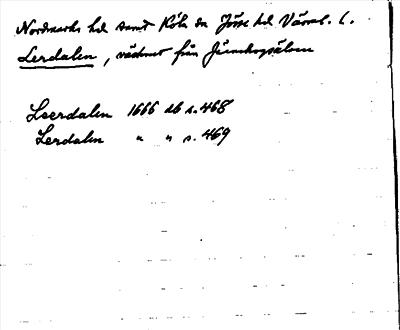 Nordmarks hd samt Köla sn Jösse hd Värml. l.
Lerdalen, vädret från Jennskogsälven
Leerdalen 1666 db s. 468
Lerdalen " " s. 469